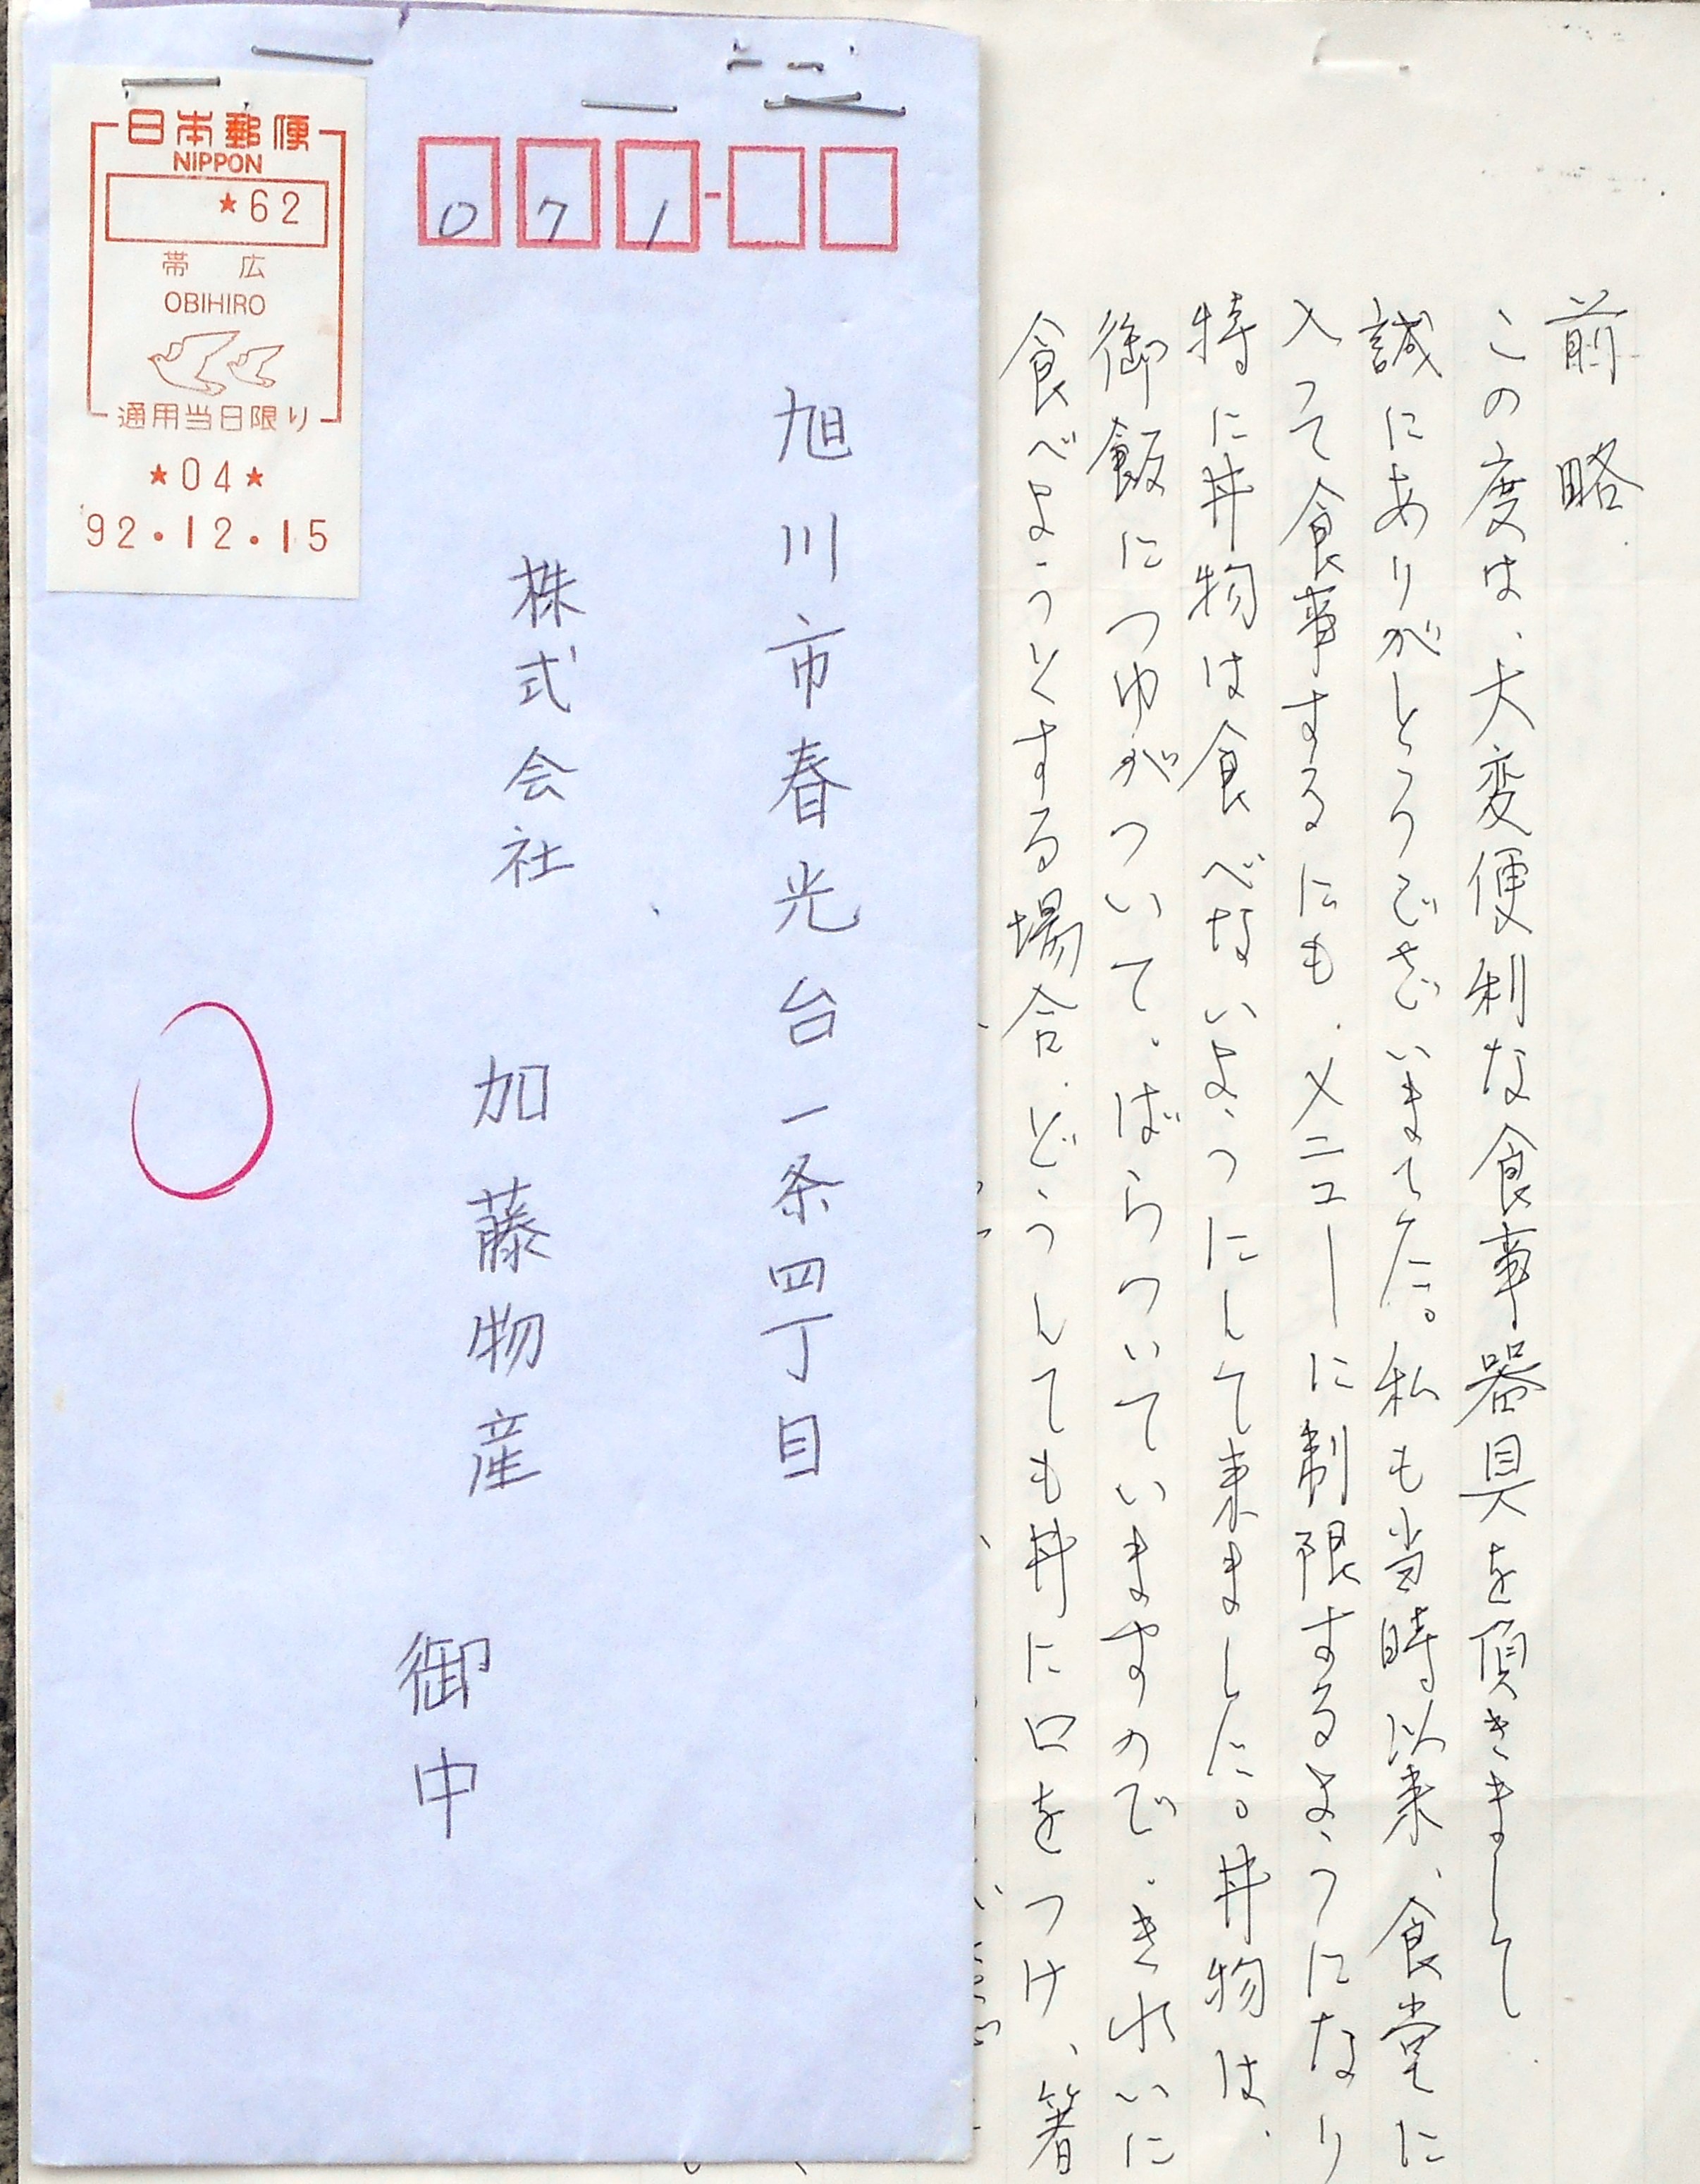 日本郵便
NIPPON
★62
帯広
OBIHIRO
通用当日限り
★04★
92.12.15
071-
旭川市春光台一条四丁目
株式会社 加藤物産
御中
前略
この度は、大変便利な食事器具を頂きまして
誠にありがとうございました。私も当時以来、食堂に
入って食事するにも、メニューに制限するようになり
特に丼物は食べないようにして来ました。丼物は、
御飯につゆがついて、ばらついていますので、きれいに
食べようとする場合、どうしても丼に口をつけ、箸